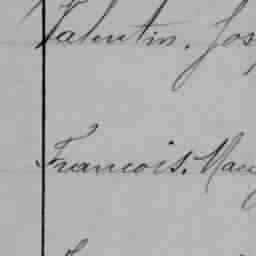 Valentin. Jos
Francois. Mau